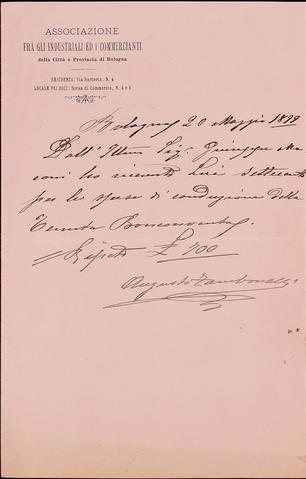 ASSOCIAZIONE
FRA GLI INDUSTRIALI ED I COMMERCIANTI
della Città e Provincia di Bologna
RESIDENZA: Via Barberia, N. 4
LOCALE PEI SOCI: Borsa di Commercio, N. 5 e 6
Bologna 20 Maggio 1899
Dall' Ill.mo Sig. Giuseppe Mar
coni ho ricevuto Lire settecento
per le spese di conduzione della
Tenuta
Ripeto £ 700
Augusto